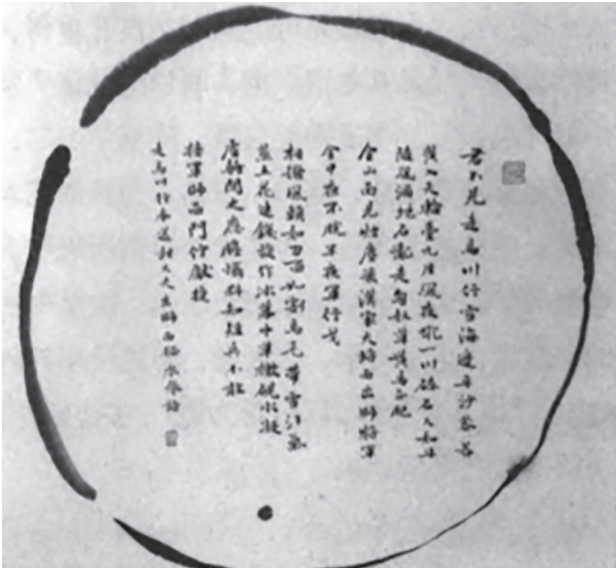 君不見走馬川行雪海邊平沙莽莽
黄入天輪臺九月風夜吼一川碎石大如斗
隨風滿地石亂走匈奴草黄馬正肥
金山西見煙塵飛漢家大將西出師將軍
金甲夜不脱半夜軍行戈
相撥風頭如刀面如割馬毛帶雪汗氣
蒸五花連錢旋作冰幕中草檄硯水凝
虜騎聞之應膽懾料知短兵不敢
接軍師西門佇獻捷
走馬川行奉送封大夫出師西征岑參詩